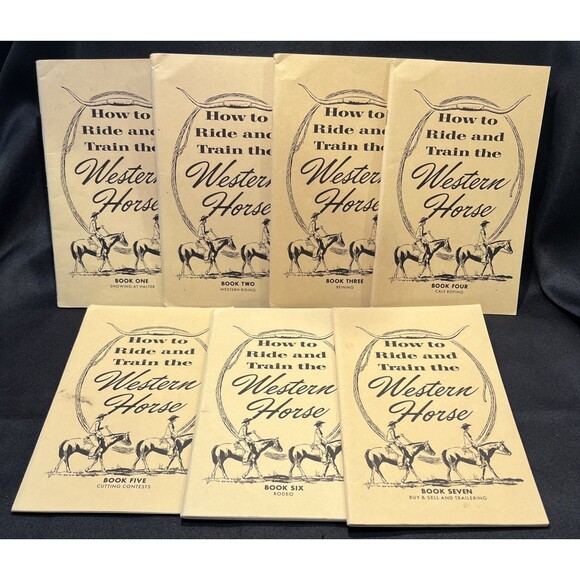 How to
Ride and
Train the
Western
Horse
BOOK ONE
SHOWING AT HALTER
How to
Ride and
Train the
Western
Horse
BOOK TWO
WESTERN RIDING
How to
Ride and
Train the
Western
Horse
BOOK THREE
REINING
How to
Ride and
Train the
Western
Horse
BOOK FOUR
CALF ROPING
How to
Ride and
Train the
Western
Horse
BOOK FIVE
CUTTING CONTESTS
How to
Ride and
Train the
Western
Horse
BOOK SIX
RODEO
How to
Ride and
Train the
Western
Horse
BOOK SEVEN
BUY & SELL AND TRAILERING